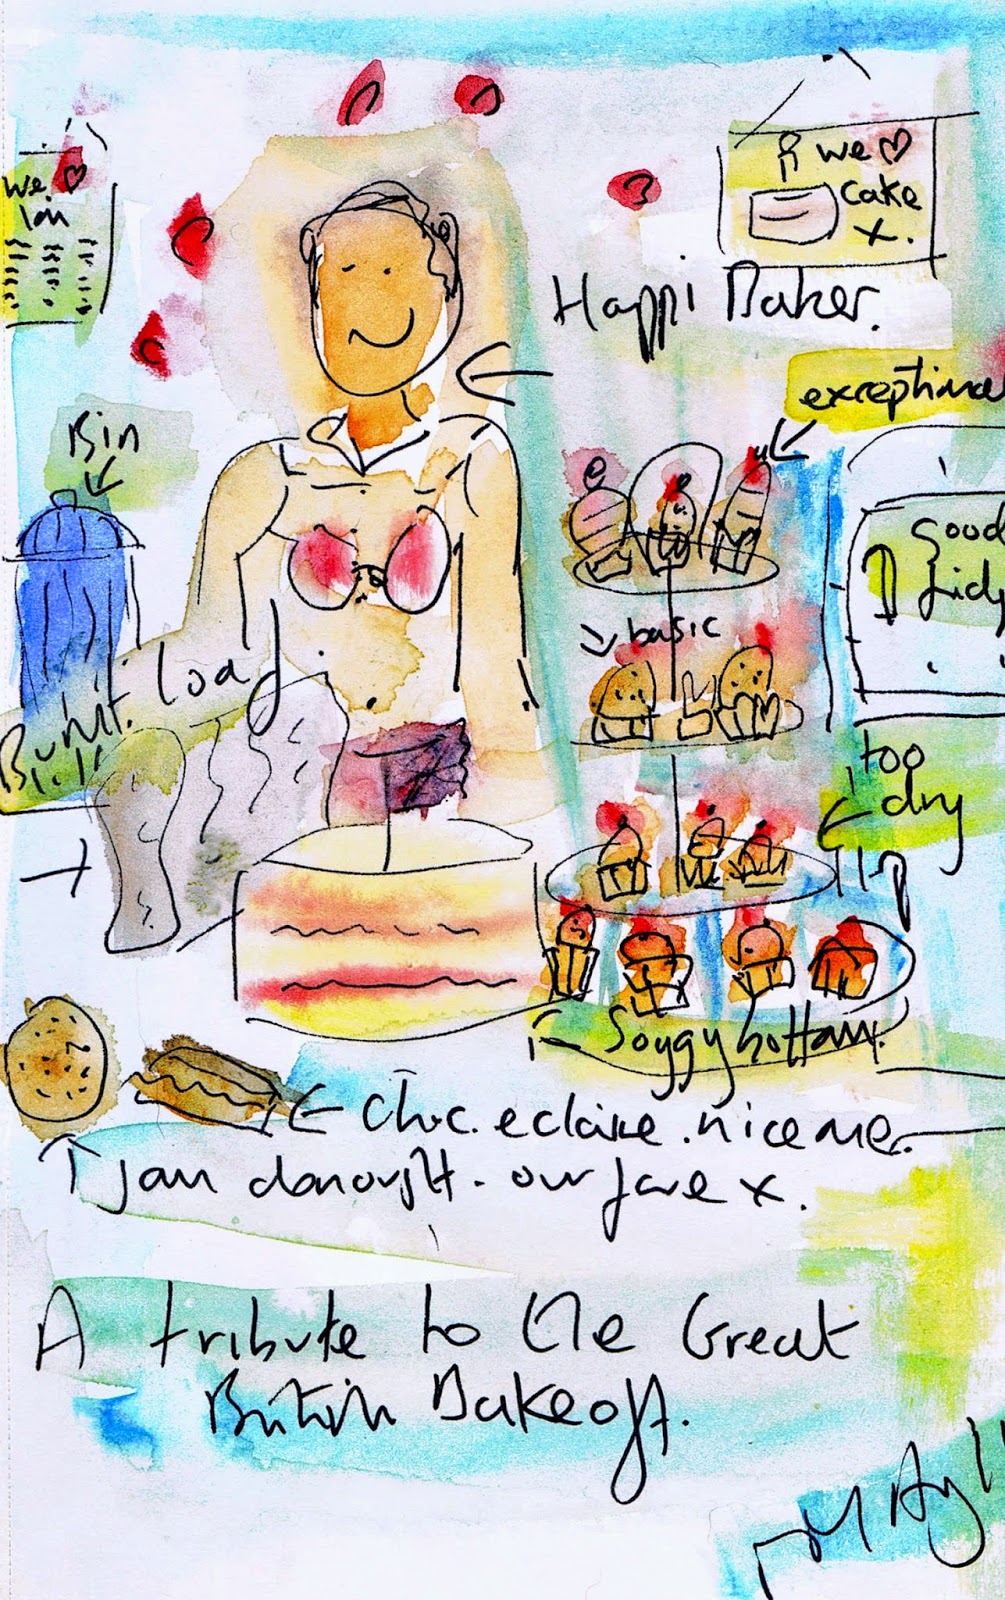 we ♡
we ♡
cake
x.
Happi Baker.
exceptional
Bin
Good
basic
Burnt. load
too
dry
Soggy bottom.
Choc. eclaire. nice one.
Jam donought. our fave x.
A tribute to the Great
British Bakeoff.